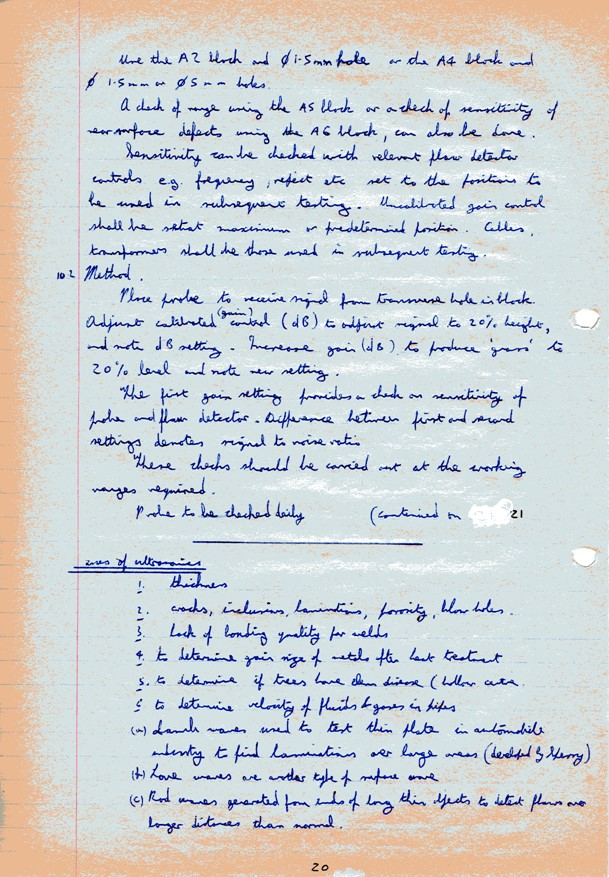 Use the A2 block and ϕ 1.5mm hole or the A4 block and
ϕ 1.5mm or ϕ5mm holes.
A check of range using the A5 block or a check of sensitivity of
near surface defects using the A6 block, can also be done.
Sensitivity can be checked with relevant flaw detector
controls e.g. frequency, reject etc set to the positions to
be used in subsequent testing. Uncalibrated gain control
shall be set at maximum or predetermined position. Cables,
transformers shall be those used in subsequent testing.
10.2 Method.
Place probe to receive signal from transverse hole in block.
Adjust calibrated (gain) control (dB) to adjust signal to 20% height,
and note dB setting. Increase gain (dB) to produce 'grass' to
20% level and note new setting.
The first gain setting provides a check on sensitivity of
probe and flaw detector. Difference between first and second
settings denotes signal to noise ratio
These checks should be carried out at the working
ranges required.
Probe to be checked daily (continued on 21
uses of ultrasonics
1. thickness
2. cracks, inclusions, laminations, porosity, blow holes.
3. lack of bonding quality for welds
4. to determine grain size of metals after heat treatment
5. to determine if trees have elm disease (hollow
to determine velocity of fluids & gases in pipes
(a) Lamb waves used to test thin plate in automobile
industry to find laminations over large areas (developed by Sperry)
(b) Love waves are another type of surface wave
(c) Rod waves generated from ends of long thin objects to detect flaws over
longer distances than normal.
20